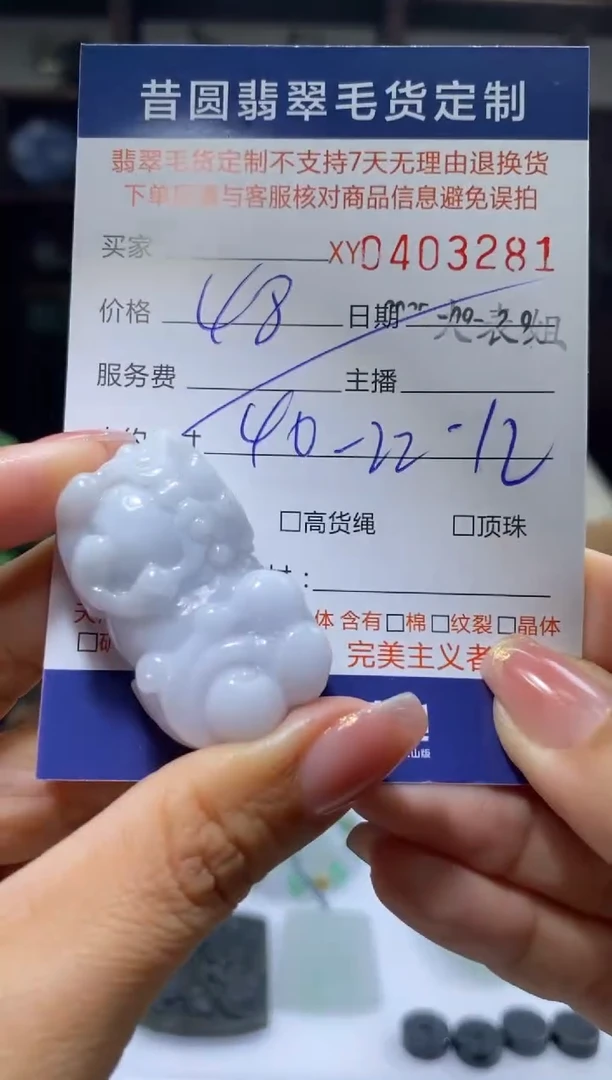 昔圆翡翠毛货定制
翡翠毛货定制不支持7天无理由退换货
下单 与客服核对商品信息避免误拍
买家 XY0403281
价格 48 日期 -09-29 大表姐
服务费 主播
40-22-12
□高货绳 □顶珠
:
天 体 含有□棉□纹裂□晶体
□矿 完美主义者
山版